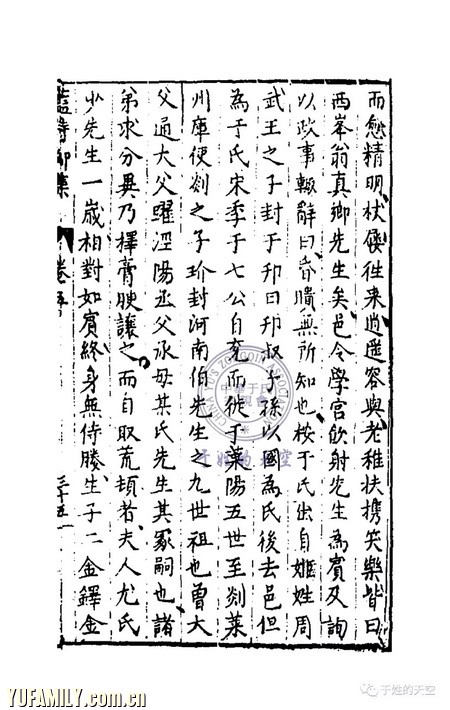 而愈精明杖屨往來逍遥容與老稚扶携笑樂皆曰
西峯翁真卿先生矣邑令學官飲射先生為賓及詢
以政事輙辭曰昏聵無所知也按于氏出自姬姓周
武王之子封于邘曰邘叔子孫以國為氏後去邑但
為于氏宋季于七公自兖而徙于萊陽五世至剡萊
州庫使剡之子玠封河南伯先生之九世祖也曾大
父通大父曜涇陽丞父承母某氏先生其冢嗣也諸
弟求分異乃擇膏腴讓之而自取荒頓者夫人尤氏
少先生一歲相對如賓終身無侍媵生子二金鐸金
藍侍御集
卷五
三十五
于姓的天空
YUFAMILY.com.cn
于姓的天空